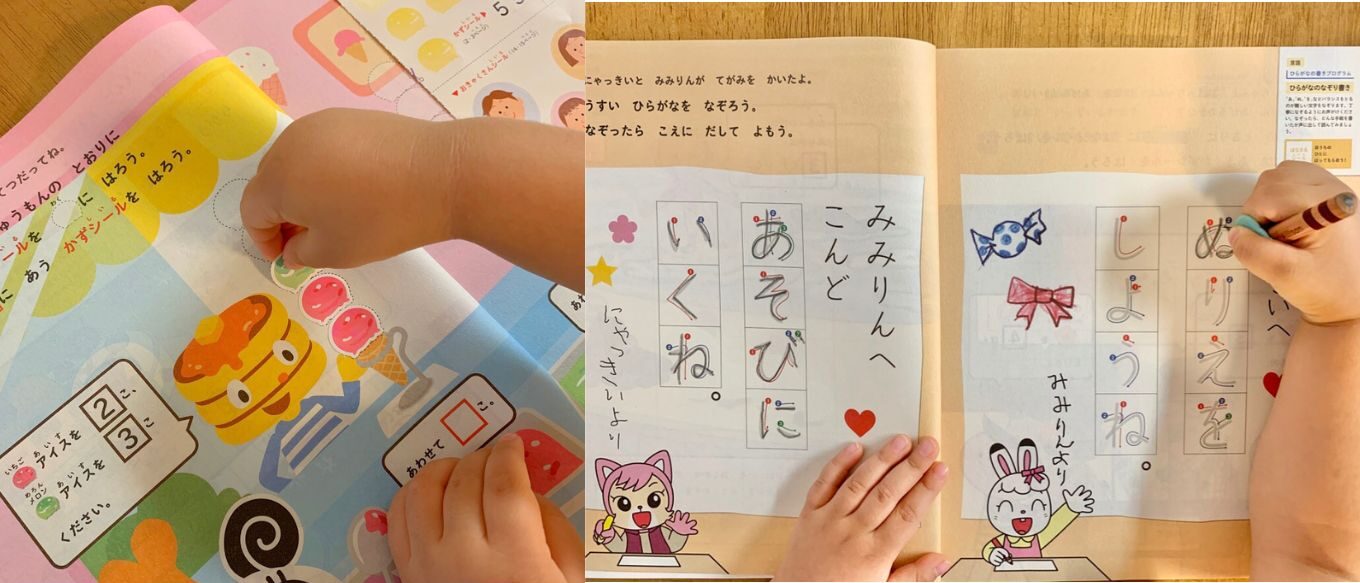 てつだってね。
ゅうもんの とおりに
シールを
に はろう。
に あう かずシールを はろう。
かずシール
おきゃくさんシール
いちご あいす
アイスを 2こ、
めろん あいす
メロン アイスを 3こ
ください。
あわせて □こ。
にゃっきいと みみりんが てがみを かいたよ。
うすい ひらがなを なぞろう。
なぞったら こえに だして よもう。
みみりんへ
こんど
あそびに
いくね。
にゃっきいより
いへ
ぬりえを
しようね。
みみりんより
言語
ひらがなの書きプログラム
ひらがなのなぞり書き